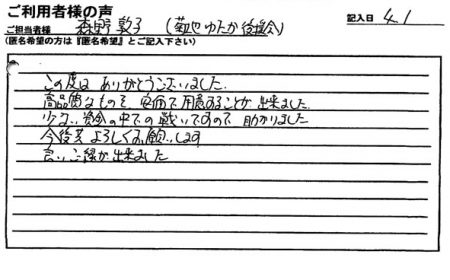 ご利用者様の声
ご担当者様 森野 敦子 (菊地ゆたか後援会) 記入日 4.1
(匿名希望の方は『匿名希望』とご記入下さい)
この度は ありがとうございました.
高品質なものを 安価で用意することが出来ました.
少ない資金の中での戦いですので 助かりました
今後共よろしくお願いします
良いご縁が出来ました